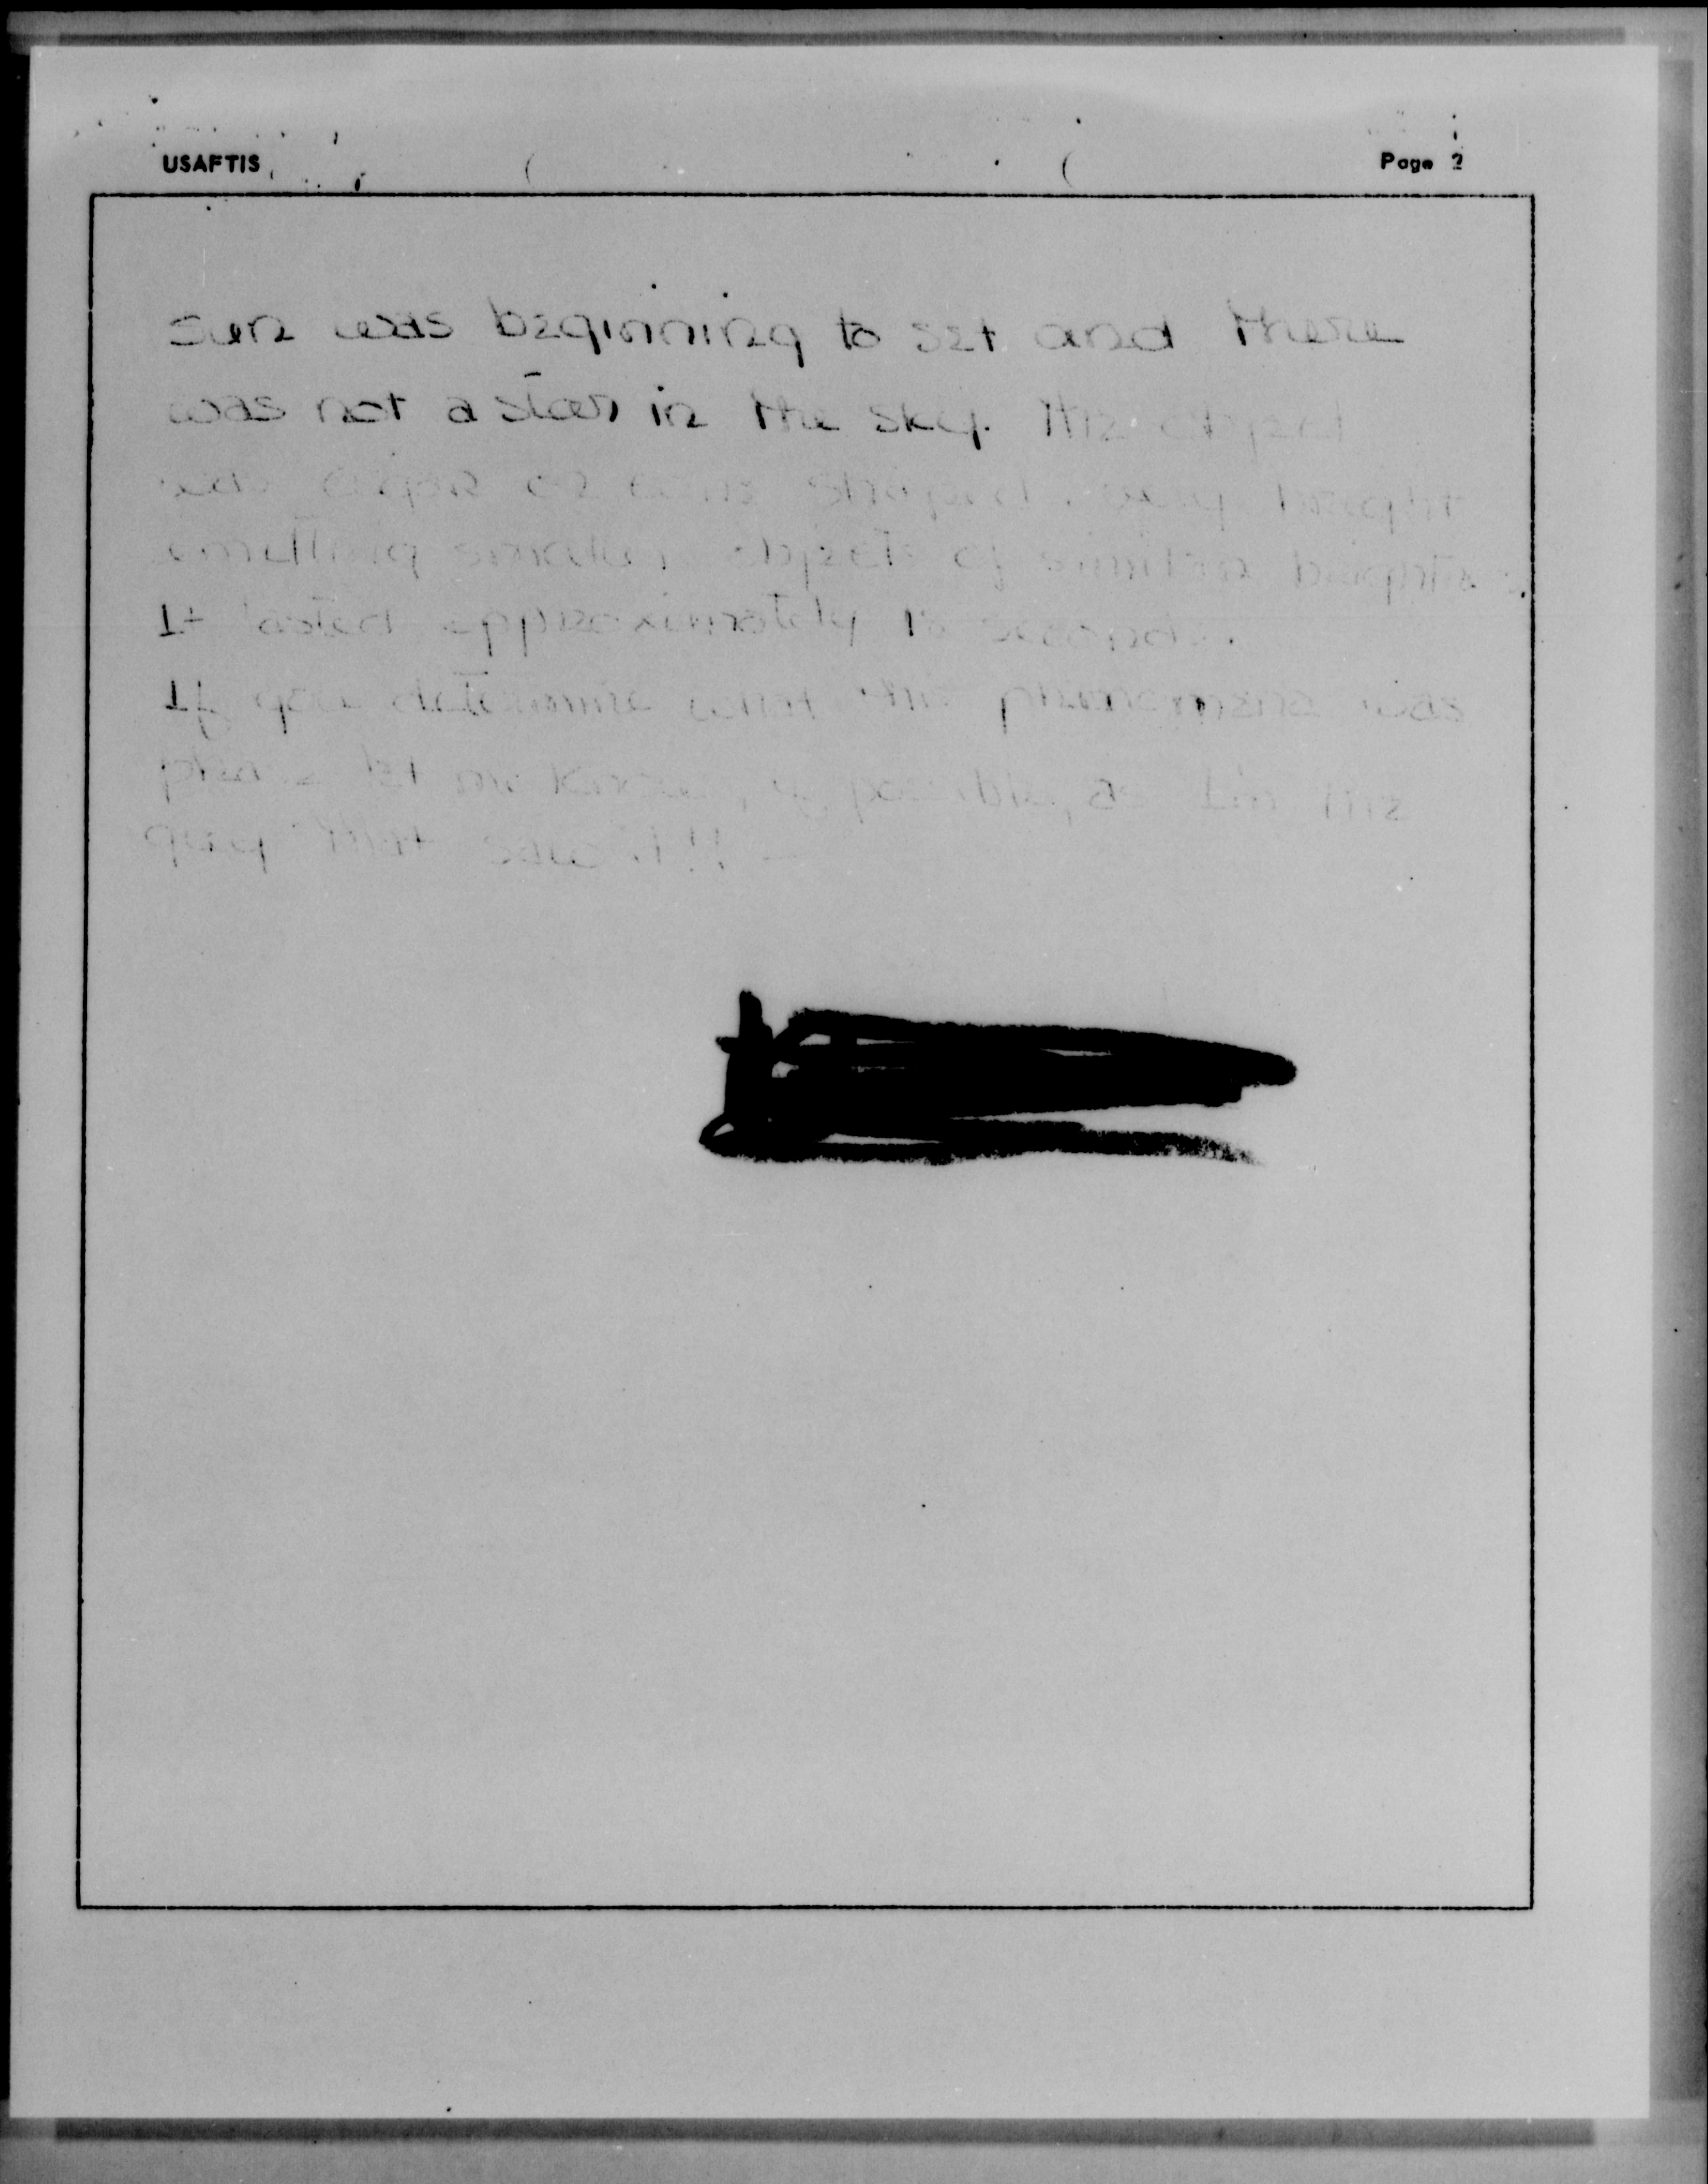 USAFTIS
Page 2
sun was beginning to set and there
was not a star in the sky. The object
was cigar or cone shaped, very bright
emitting smaller objects of similar brightness.
It lasted approximately seconds.
If you determine what this phenomena was
please let me know, if possible, as I'm the
guy that saw it!!